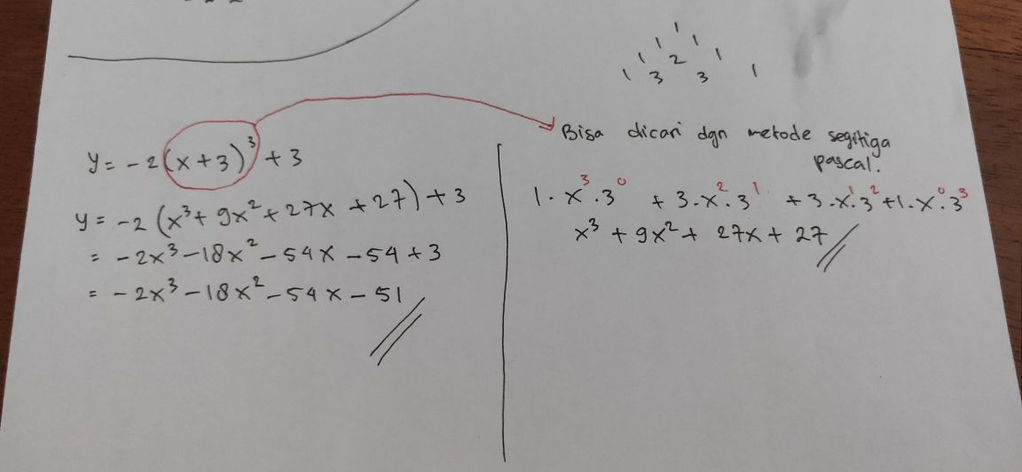 1
1 1
1 2 1
1 3 3 1
y = -2(x+3)³ + 3
y = -2(x³ + 9x² + 27x + 27) + 3
= -2x³ - 18x² - 54x - 54 + 3
= -2x³ - 18x² - 54x - 51
Bisa dicari dgn metode segitiga
pascal.
1. x³. 3⁰ + 3. x². 3¹ + 3. x¹. 3² + 1. x⁰. 3³
x³ + 9x² + 27x + 27